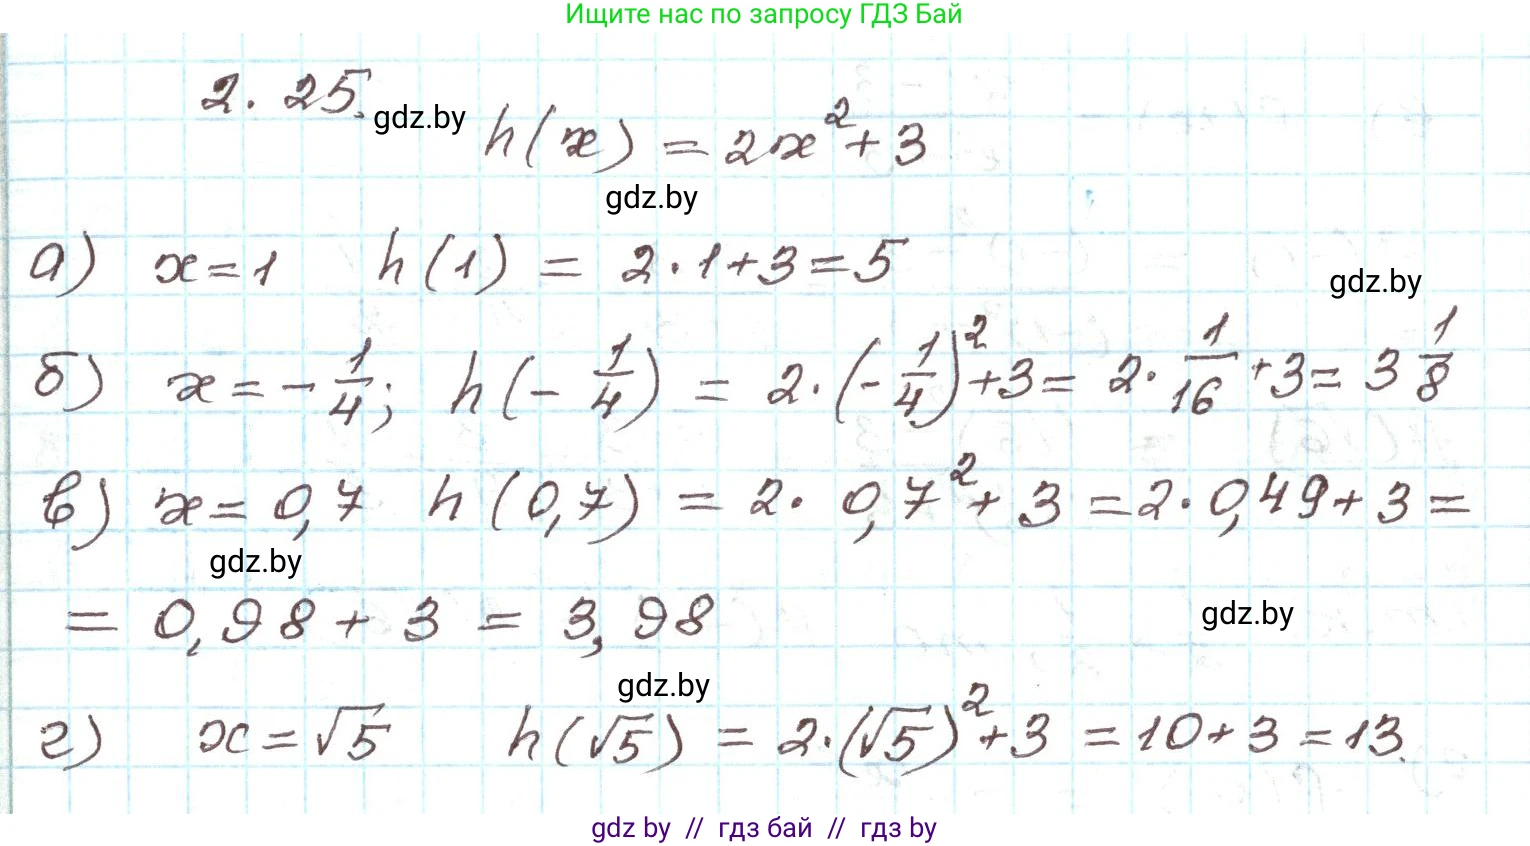 Ищите нас по запросу ГДЗ Бай
2. 25.
gdz.by
h(x) = 2x² + 3
gdz.by
а) x = 1 h(1) = 2·1+3=5
gdz.by
б) x = -1/4; h(-1/4) = 2·(-1/4)²+3= 2·1/16+3= 3 1/8
в) x = 0,7 h(0,7) = 2· 0,7²+ 3 =2·0,49+3=
gdz.by
= 0,98 + 3 = 3,98
gdz.by
gdz.by
г) x = √5 h(√5) = 2·(√5)²+3 =10+3=13.
gdz by // гдз бай // гдз by